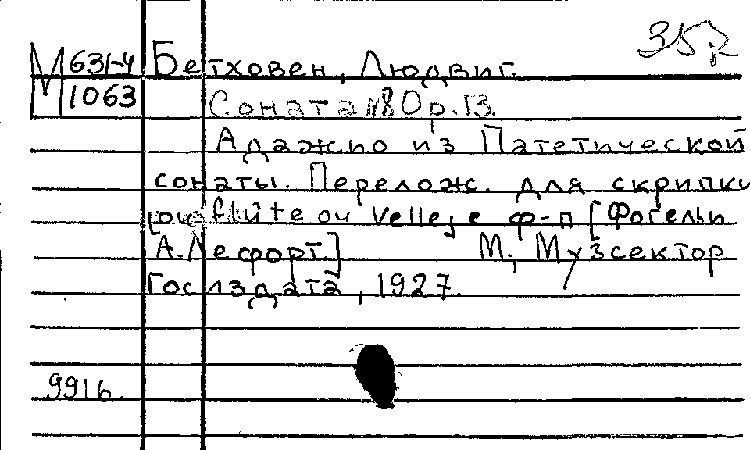 35
М 631-4 Бетховен, Людвиг.
М 1063 Соната №8 Op. 13.
Адажио из Патетической
сонаты. Перелож. для скрипки
flûte ou Velle, e ф-п [Фогель и
А. Лефорт.] М., Музсектор
Госиздата, 1927.
9916.